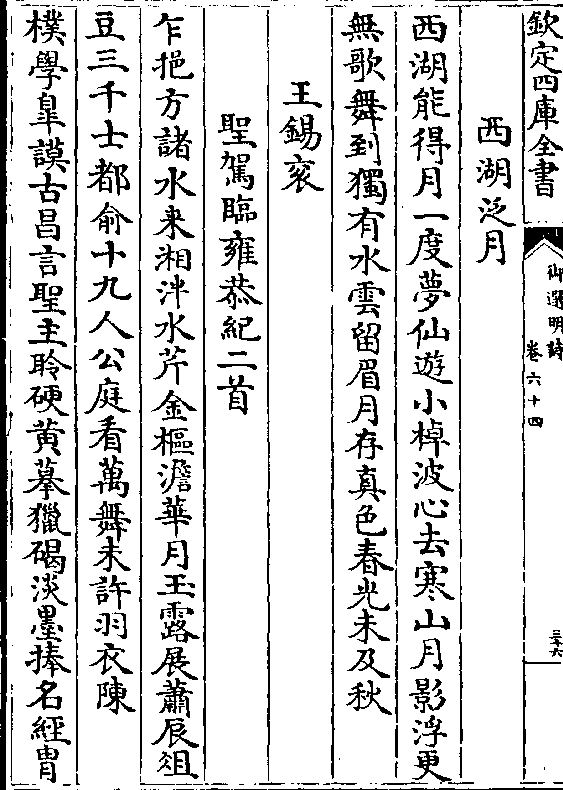 欽定四庫全書
御選明詩
卷六十四
三十六
西湖泛月
西湖能得月一度夢仙遊小棹波心去寒山月影浮更
無歌舞到獨有水雲留眉月存真色春光未及秋
王錫衮
聖駕臨雍恭紀二首
乍挹方諸水来湘泮水芹金樞澹華月玉露展蕭辰俎
豆三千士都俞十九人公庭看萬舞未許羽衣陳
樸學臯謨古昌言聖主聆硬黄摹獵碣淡墨捧名經胄